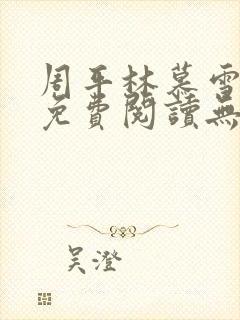 周平林慕雪
免費閱讀無
吴澄